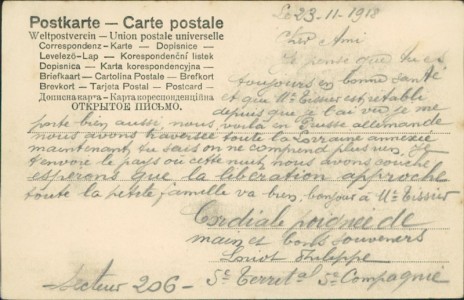 Postkarte – Carte postale
Weltpostverein – Union postale universelle
Correspondenz-Karte — Dopisnice —
Levelező-Lap — Korespondenční lístek
Dopisnica — Karta korespondencyjna —
Briefkaart – Cartolina Postale – Brefkort
Brevkort – Tarjeta Postal – Postcard –
Дописна карта – Карта кореспонденційна
ОТКРЫТОЕ ПИСЬМО.
Le 23-11-1918
Cher Ami
Je pense que tu es
toujours en bonne santé
et que Me Tissier est rétabli
depuis que je l'ai vu, je me
porte bien aussi, nous voilà en Prusse allemande
nous avons traversée toute la Lorraine annexée
maintenant, tu sais on ne comprend plus rien, je
t'envoie le pays où cette nuit nous avons couché
esperons que la libération approche
toute la petite famille va bien, bonjour à Me Tissier
Cordiale poignée de
main et bons souvenirs
Loriot Philippe
Secteur 206 – 5e Territal 5e Compagnie